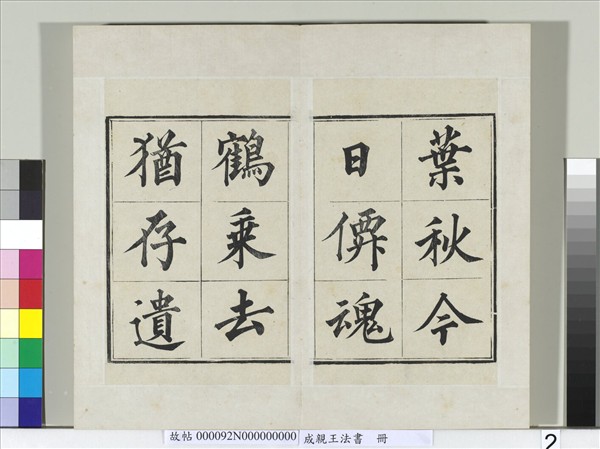 葉秋今
日僊魂
鶴乗去
猶存遺
故帖 000092N000000000 成親王法書 冊
2